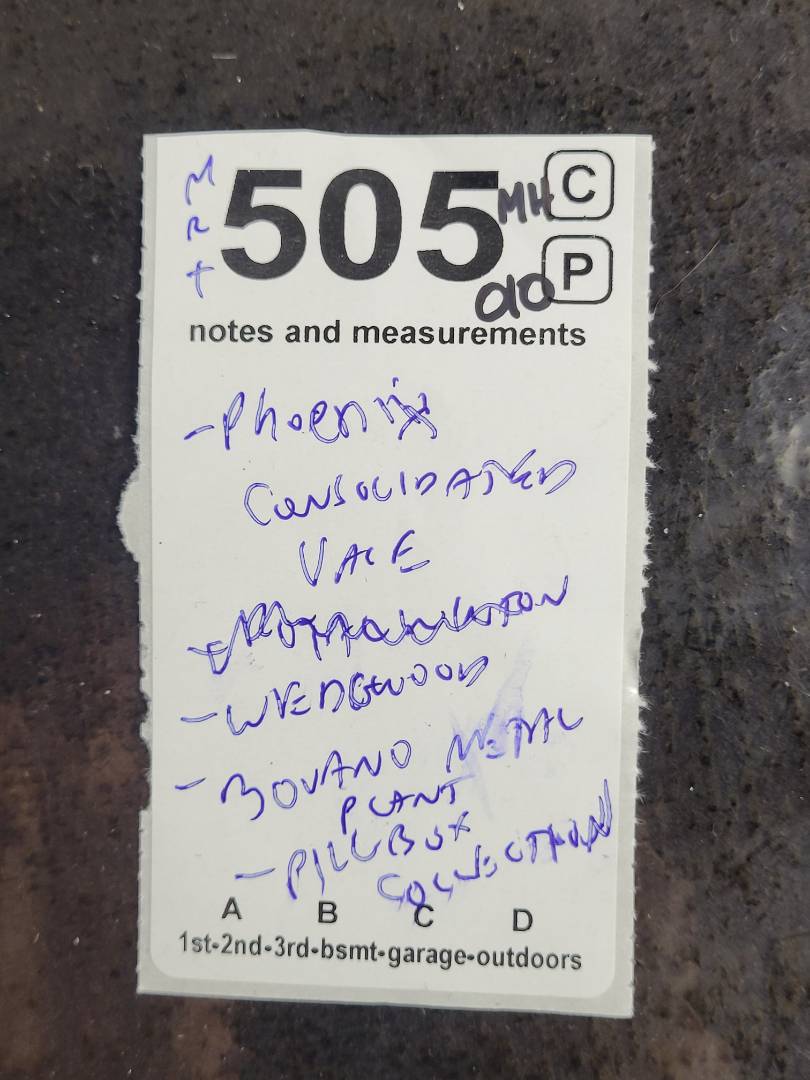 M
R
T
505
MH
C
P
notes and measurements
- Phoenix
CONSOLIDATED
VACE
- WEDGWOOD
- BOVANO METAL
PLANT
- PILLBOX
COLLECTION
A B C D
1st-2nd-3rd-bsmt-garage-outdoors